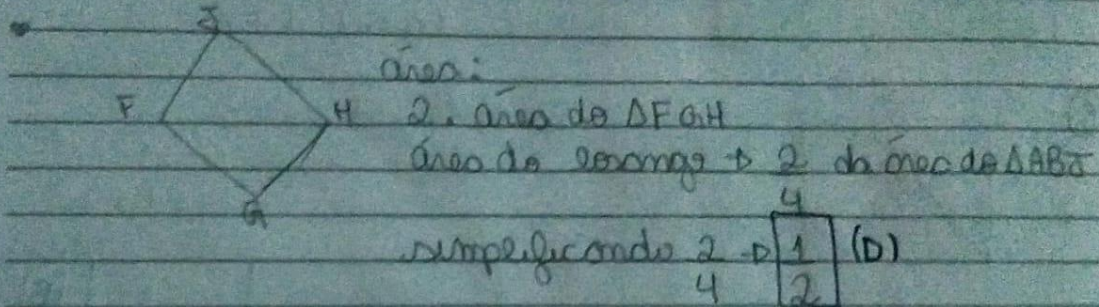 J
área:
F H 2. área do ΔFGH
área do losango → 2/4 da área do ΔABJ
G
simplificando 2/4 → 1/2 (D)